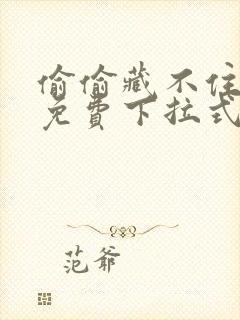 偷偷藏不住
免費下拉式
范爺